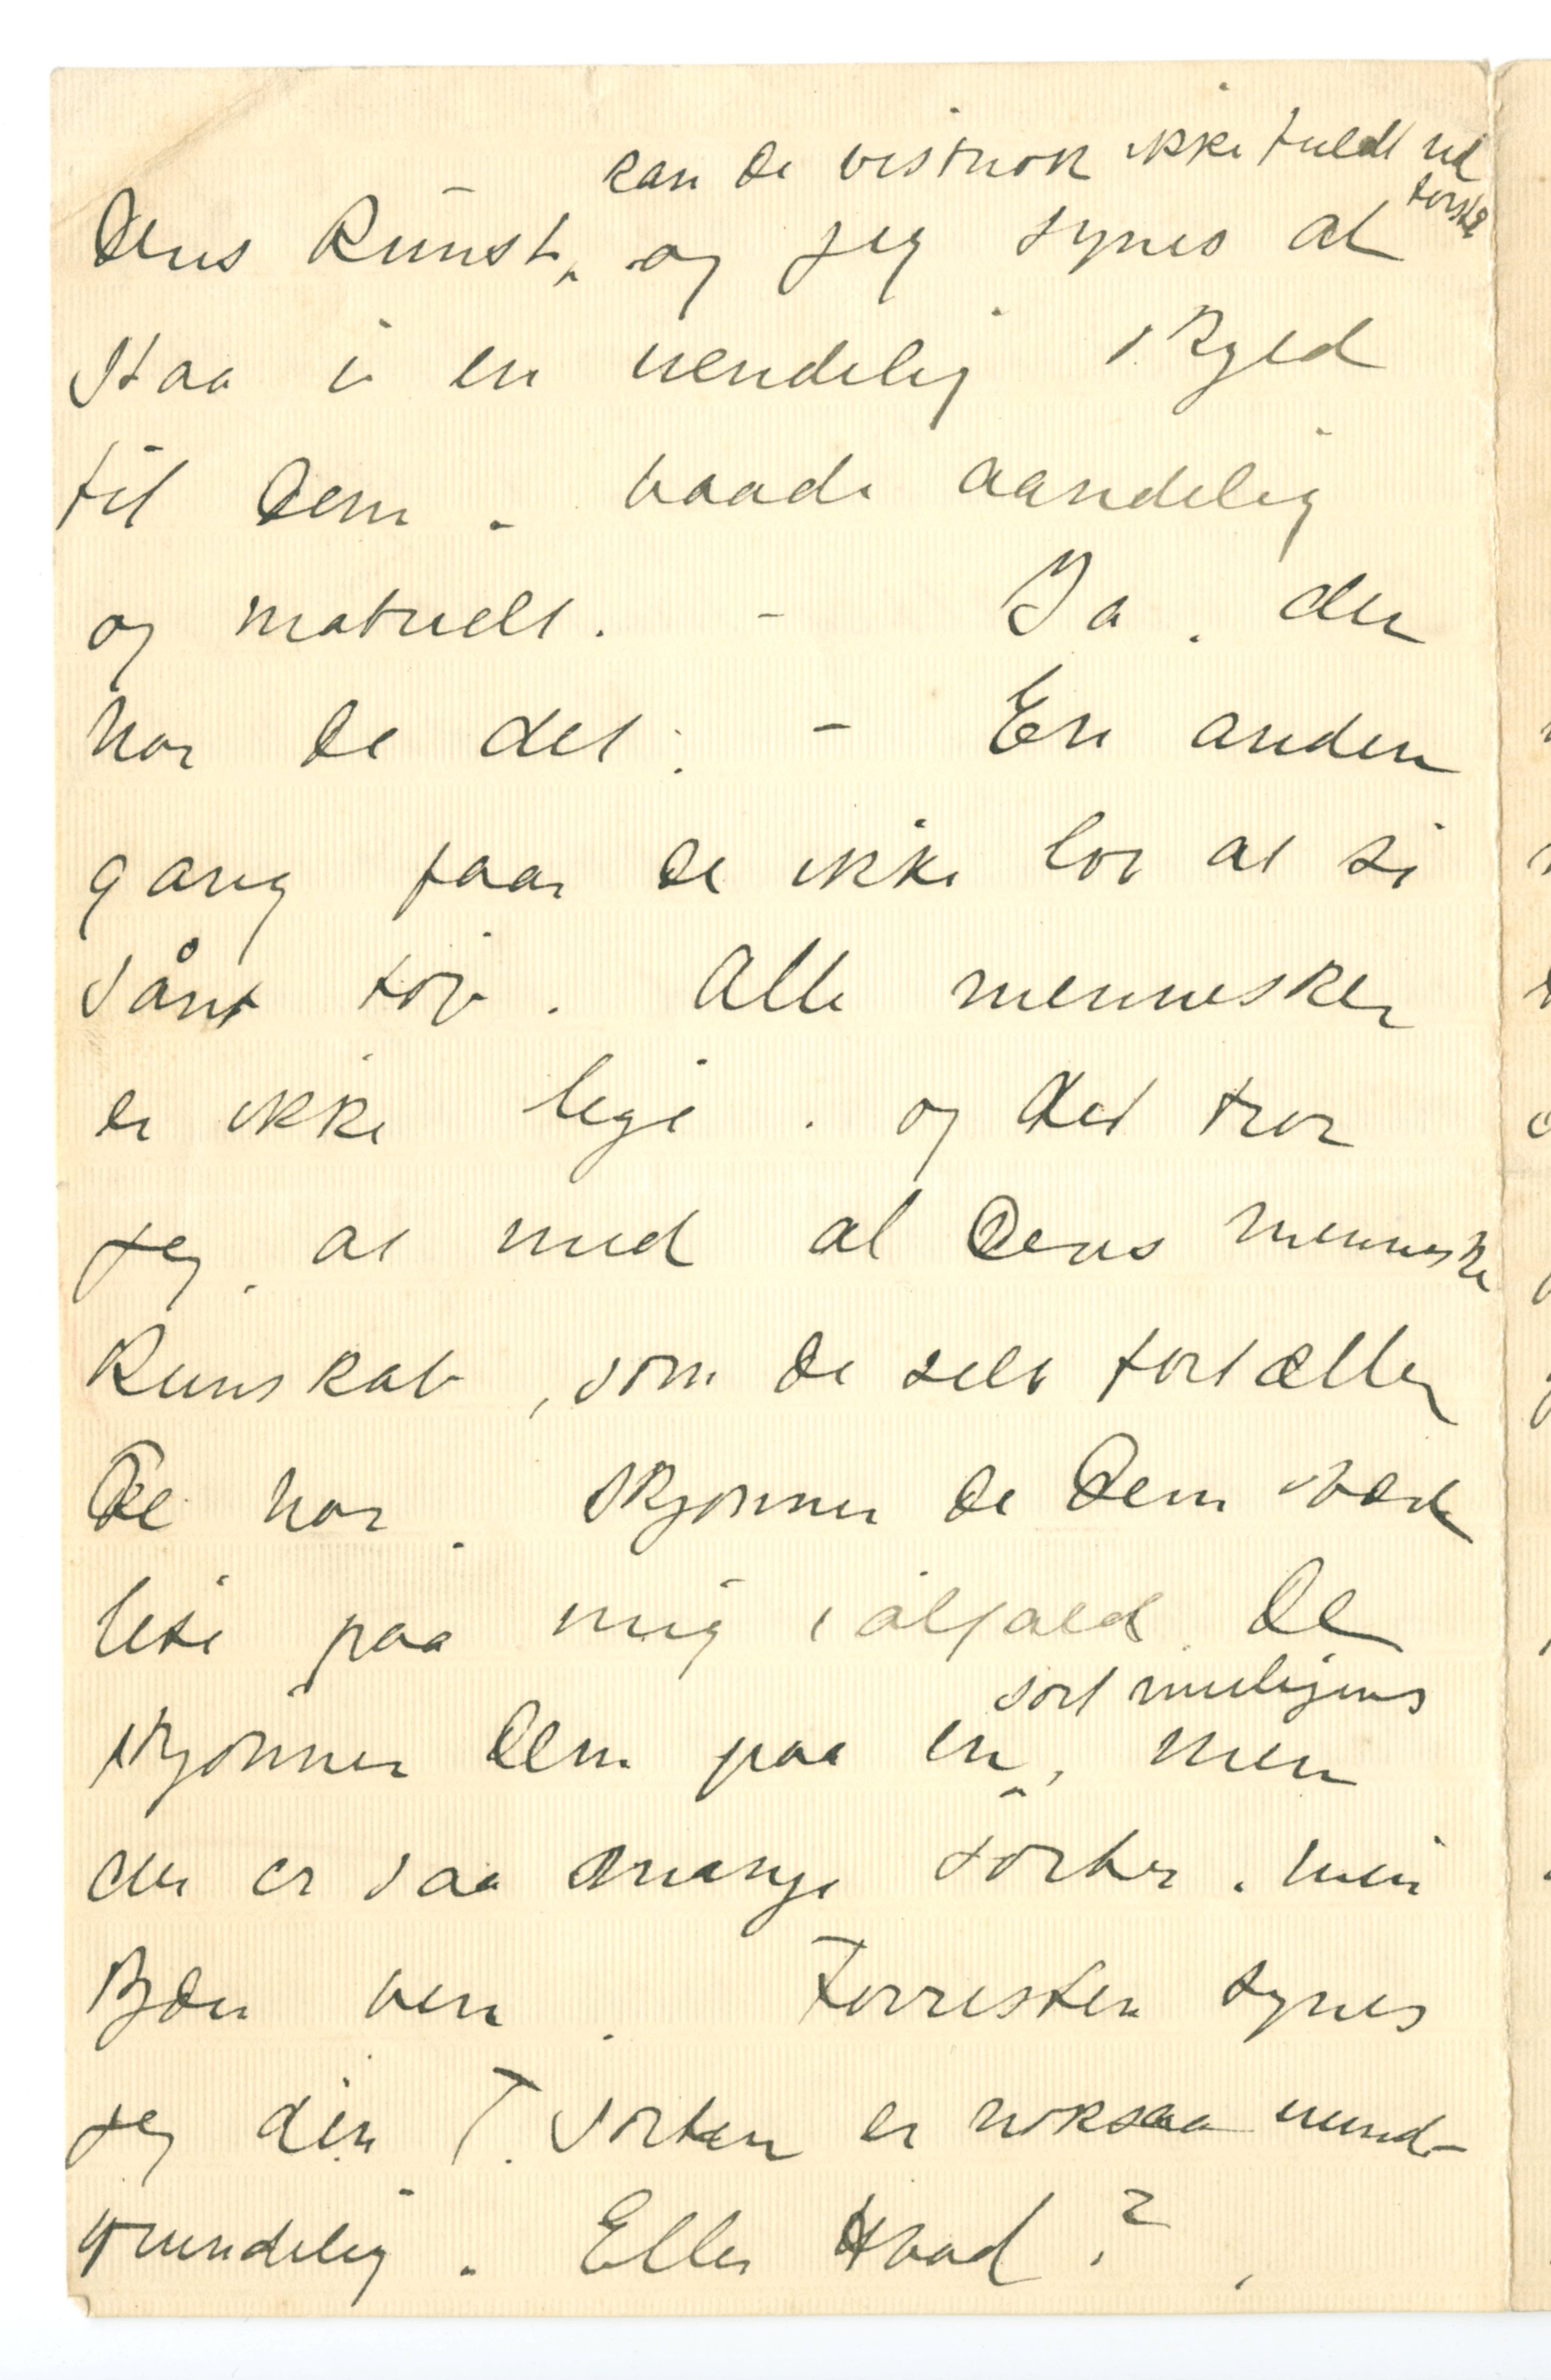 kan De vistnok ikke fuldt ud
forstå
Deres Kunst, og jeg synes at
staa i en uendelig skyld
til Dem. baade aandelig
og materielt. - Ja. der
har De det: - En anden
gang faar De ikke lov at si
sånt tøv. Alle mennesker
er ikke lige. og det tror
jeg, at med al Deres menneske
kunskab, som De selv fortæller
De har, skjønner De Dem
lite paa mig ialfald. De
sort muligens
skjønner Dem paa en, men
der er saa mange sorter. min
kjære ven. Forresten synes
jeg den T. sorten er noksaa uund-
grundelig. Eller Hvad?